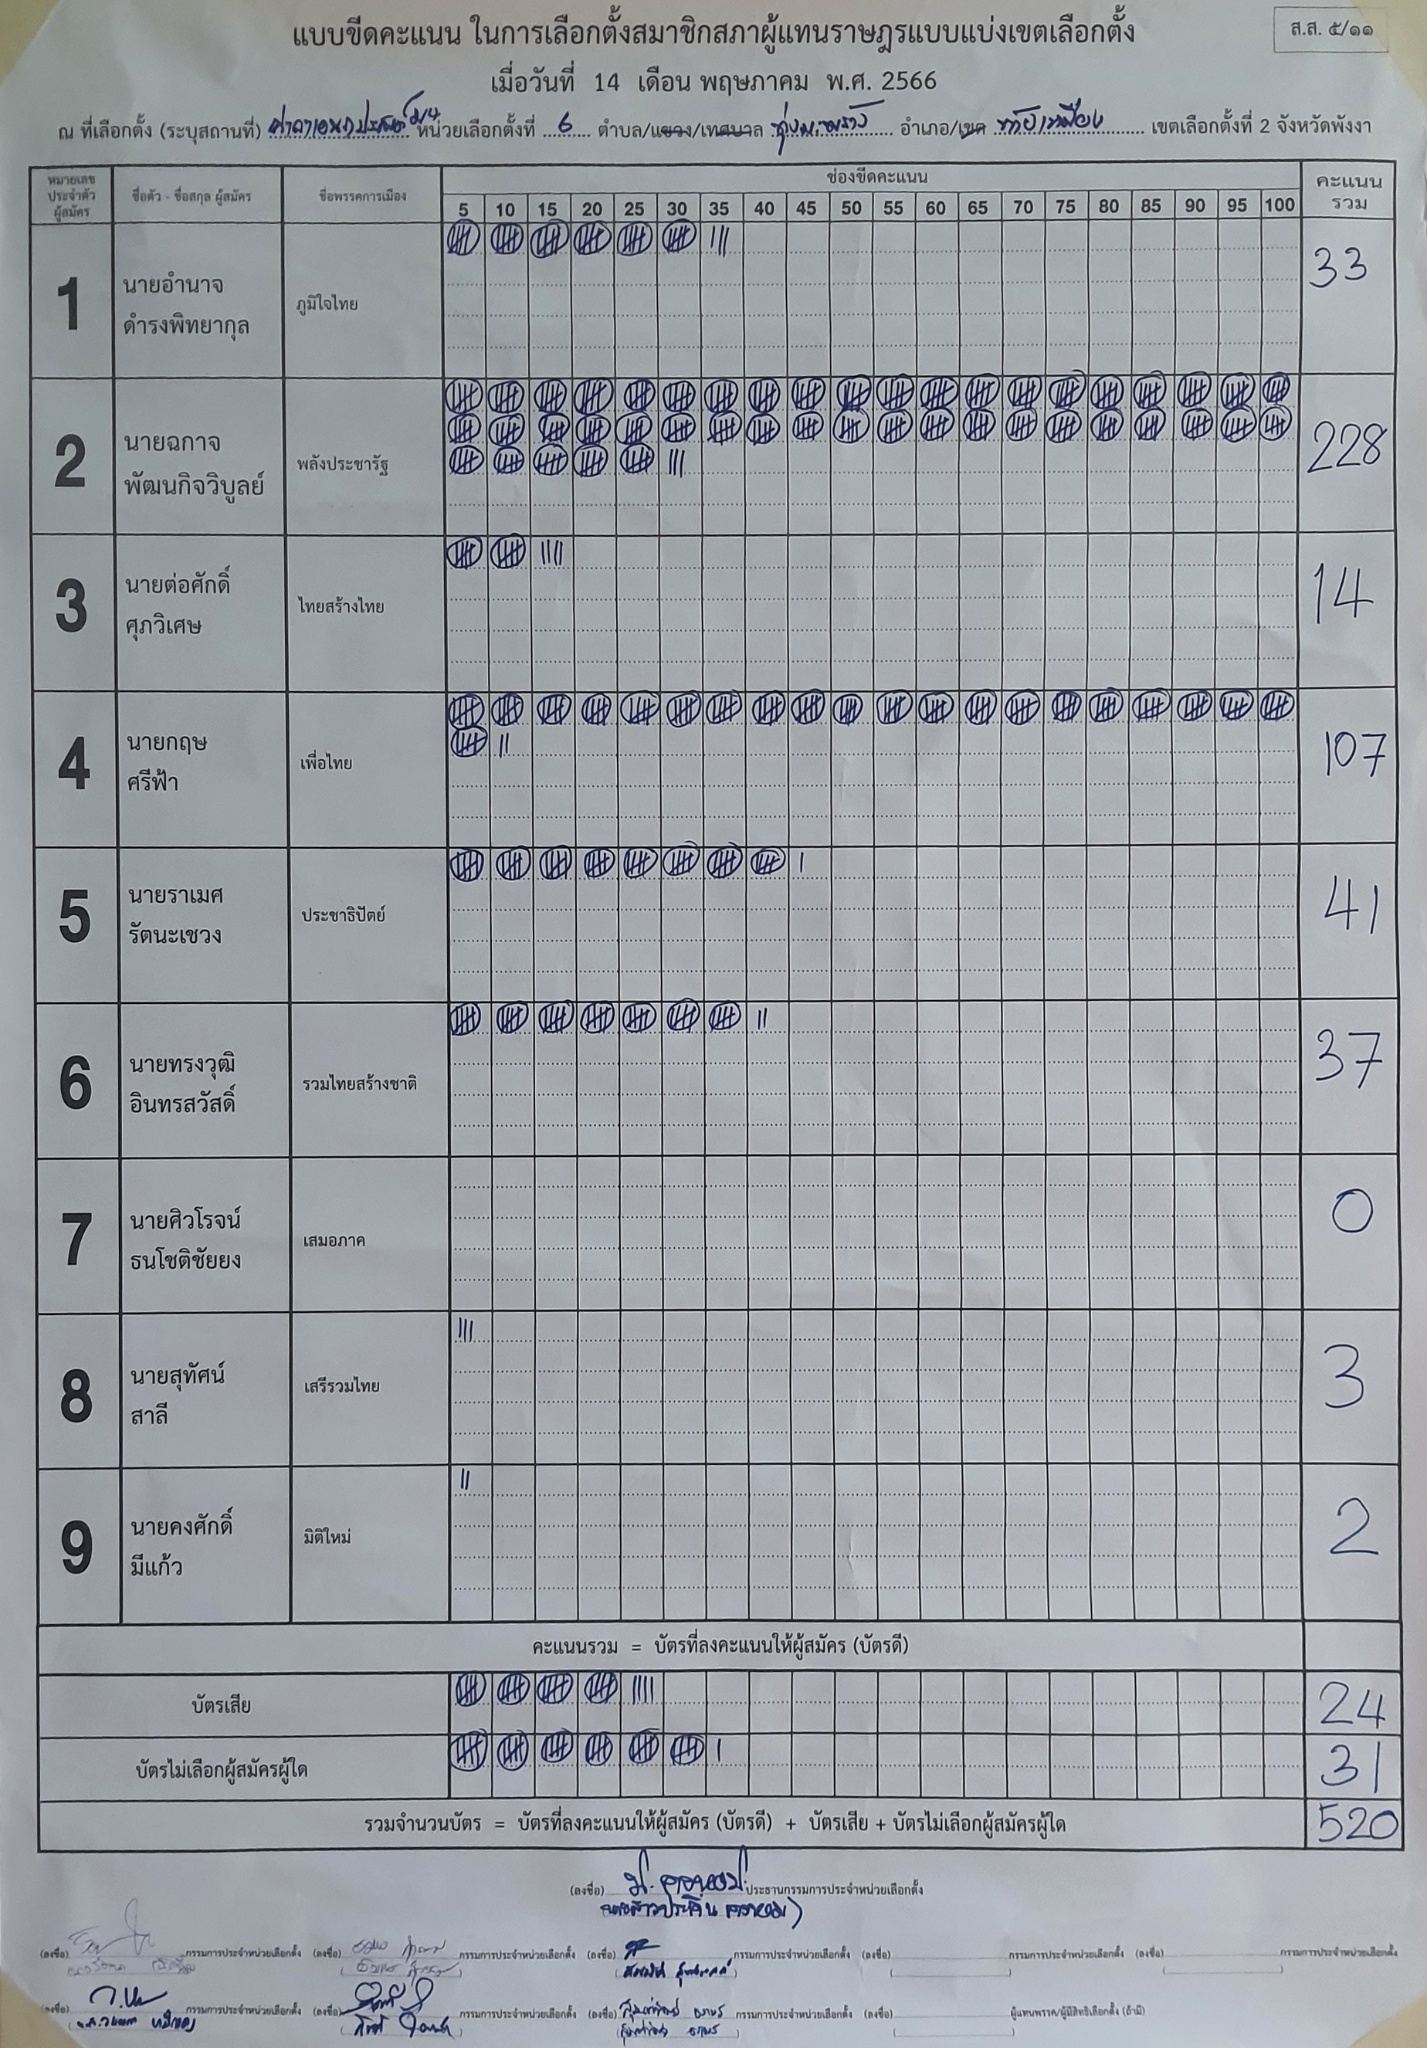 ส.ส. ๕/๑๑
แบบขีดคะแนน ในการเลือกตั้งสมาชิกสภาผู้แทนราษฎรแบบแบ่งเขตเลือกตั้ง
เมื่อวันที่ 14 เดือน พฤษภาคม พ.ศ. 2566
ณ ที่เลือกตั้ง (ระบุสถานที่) ศาลาเอนกประสงค์ หน่วยเลือกตั้งที่ 6 ตำบล/แขวง/เทศบาล อำเภอ/เขต ท้ายเหมือง เขตเลือกตั้งที่ 2 จังหวัดพังงา
หมายเลขประจำตัวผู้สมัคร ชื่อตัว - ชื่อสกุล ผู้สมัคร ชื่อพรรคการเมือง ช่องขีดคะแนน คะแนนรวม
5 10 15 20 25 30 35 40 45 50 55 60 65 70 75 80 85 90 95 100
1 นายอำนาจ ดำรงพิทยากุล ภูมิใจไทย 33
2 นายฉกาจ พัฒนกิจวิบูลย์ พลังประชารัฐ 228
3 นายต่อศักดิ์ ศุภวิเศษ ไทยสร้างไทย 14
4 นายกฤษ ศรีฟ้า เพื่อไทย 107
5 นายราเมศ รัตนะเชวง ประชาธิปัตย์ 41
6 นายทรงวุฒิ อินทรสวัสดิ์ รวมไทยสร้างชาติ 37
7 นายศิวโรจน์ ธนโชติชัยยง เสมอภาค 0
8 นายสุทัศน์ สาลี เสรีรวมไทย 3
9 นายคงศักดิ์ มีแก้ว มิติใหม่ 2
คะแนนรวม = บัตรที่ลงคะแนนให้ผู้สมัคร (บัตรดี)
บัตรเสีย 24
บัตรไม่เลือกผู้สมัครผู้ใด 31
รวมจำนวนบัตร = บัตรที่ลงคะแนนให้ผู้สมัคร (บัตรดี) + บัตรเสีย + บัตรไม่เลือกผู้สมัครผู้ใด 520
(ลงชื่อ) ประธานกรรมการประจำหน่วยเลือกตั้ง
(ลงชื่อ) กรรมการประจำหน่วยเลือกตั้ง (ลงชื่อ) กรรมการประจำหน่วยเลือกตั้ง (ลงชื่อ) กรรมการประจำหน่วยเลือกตั้ง (ลงชื่อ) กรรมการประจำหน่วยเลือกตั้ง (ลงชื่อ) กรรมการประจำหน่วยเลือกตั้ง
(ลงชื่อ) กรรมการประจำหน่วยเลือกตั้ง (ลงชื่อ) กรรมการประจำหน่วยเลือกตั้ง (ลงชื่อ) กรรมการประจำหน่วยเลือกตั้ง (ลงชื่อ) ผู้แทนพรรค/ผู้มีสิทธิเลือกตั้ง (ถ้ามี)